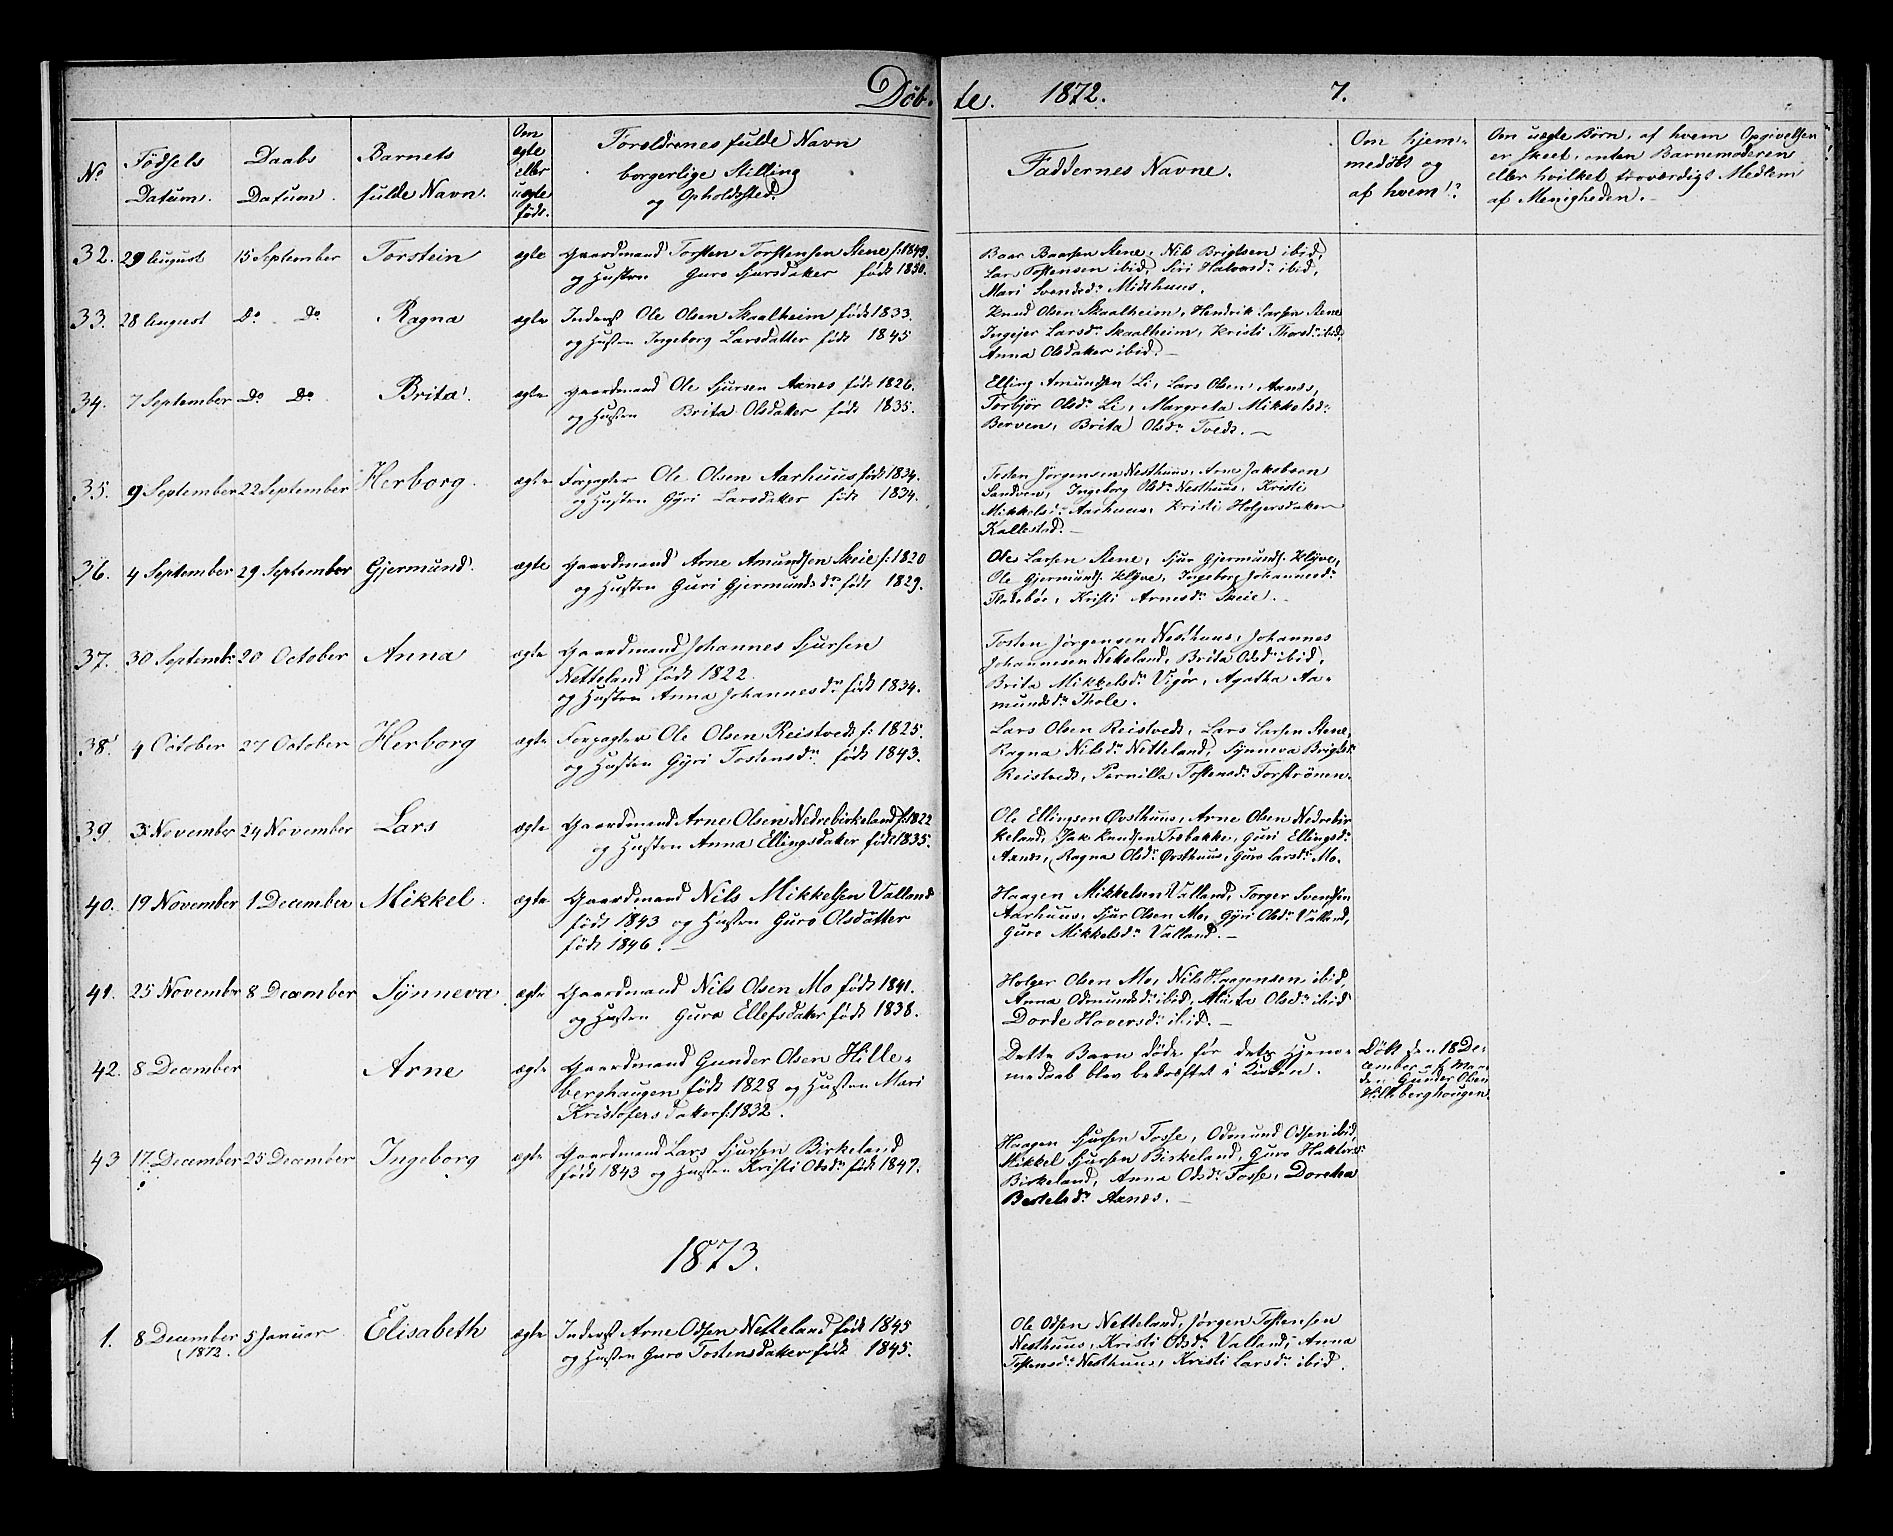 Døb-
te. 1872. 7.
No
Fødsels
Datum.
Daabs
Datum.
Barnets
fulde Navn.
Om
ægte
eller
uægte
født.
Forældrenes fulde Navn
borgerlige Stilling
og Opholdssted.
Faddernes Navne.
Om hjem-
medøbt og
af hvem?
Om uægte Børn, af hvem Opgivelsen
er skeet, enten Barnemoderen
eller hvilket troværdigt Medlem
af Menigheden.
32. 29 August 15 September Torstein ægte Gaardmand Torsten Torstensen Stene f: 1849.
og Hustru Guro Sjursdatter født 1850.
Baar Baarsen Stene, Nils Brigtsen ibid,
Lars Tostensen ibid, Siri Halvorsdr ibid,
Mari Svendsdr Midthuus.
33. 28 August Do Do Ragna ægte Inderst Ole Olsen Skaalheim født 1833.
og Hustru Ingeborg Larsdatter født 1845
Knud Olsen Skaalheim, Hendrik Larsen Stene
Ingejer Larsdr Skaalheim, Kristi Thorsdr ibid,
Anna Olsdatter ibid.
34. 7 September Do Do Brita. ægte Gaardmand Ole Sjursen Aanes født 1826.
og Hustru Brita Olsdatter født 1835.
Elling Amundsen Li, Lars Olsen Aanes,
Torbjør Olsdr Li, Margreta Mikkelsdr
Berven, Brita Olsdr Tvedt.
35. 9 September 22 September Herborg. ægte Forpagter Ole Olsen Aarhuus født 1834.
og Hustru Gyri Larsdatter født 1834.
Tosten Jørgensen Nesthuus, Arne Jakobsen
Sandven, Ingeborg Olsdr Nesthuus, Kristi
Mikkelsdr Aarhuus, Kristi Holgersdatter
Kallestad.
36. 4 September 29 September Gjermund. ægte Gaardmand Arne Amundsen Skeie f: 1820
og Hustru Guri Gjermundsdr født 1829.
Ole Larsen Stene, Sjur Gjermunds. Klyve,
Ole Gjermunds. Klyve, Ingeborg Johannesdr
Flatebøe, Kristi Arnesdr Skeie.
37. 30 Septembr 20 October Anna ægte Gaardmand Johannes Sjursen
Netteland født 1822.
og Hustru Anna Johannesdr født 1834.
Tosten Jørgensen Nesthuus, Johannes
Johannesen Netteland, Brita Odsdr ibid,
Brita Mikkelsdr Vigør, Agatha Aa-
mundsdr Thole.
38. 4 October 27 October Herborg ægte Forpagter Ole Olsen Reistvedt f: 1825.
og Hustru Gyri Tostensdr født 1843.
Lars Olsen Reistvedt, Lars Larsen Stene,
Ragna Nilsdr Netteland, Synneva Brigtsdr
Reistvedt, Pernilla Tostensdr Forströnen.
39. 3 November 24 November Lars ægte Gaardmand Arne Olsen Nedrebirkeland f: 1822
og Hustru Anna Ellingsdatter født 1835.
Ole Ellingsen Øvsthuus, Arne Olsen Nedrebir-
keland, Isak Knudsen Tosbakke, Guri Ellingsdr
Aanes, Ragna Olsdr Øvsthuus, Guro Larsdr Mo.
40. 19 November 1 December Mikkel. ægte Gaardmand Nils Mikkelsen Valland
født 1843 og Hustru Guro Olsdatter
født 1846.
Haagen Mikkelsen Valland, Torger Svendsen
Aarhuus, Sjur Olsen Mo, Gyri Olsdr Valland,
Guro Mikkelsdr Valland.
41. 25 Novembr 8 December Synneva ægte Gaardmand Nils Olsen Mo født 1841.
og Hustru Guro Ellefsdatter født 1838.
Holger Olsen Mo, Nils Haagensen ibid,
Anna Odmundsdr ibid, Marta Olsdr ibid
Dorde Hoversdr ibid.
42. 8 December Arne ægte Gaardmand Gunder Olsen Hille-
berghaugen født 1828 og Hustru Mari
Kristofersdatter f: 1832.
Dette Barn døde før dets Hjem-
medaab blev bekræftet i Kirken.
Døbt den 18 De-
cember af Man-
den Gunder Olsen
Hilleberghougen.
43 17 December 25 December Ingeborg ægte Gaardmand Lars Sjursen Birkeland
født 1843 og Hustru Kristi Odsdr født 1847.
Haagen Sjursen Fosse, Odmund Odsen ibid,
Mikkel Sjursen Birkeland, Guro Haktorsdr
Birkeland, Anna Odsdr Fosse, Dorthea
Bertelsdr Aanes.
1873.
1. 8 December 5 Januar Elisabeth ægte Inderst Arne Odsen Netteland født 1845
(1872.
og Hustru Guro Tostensdatter født 1845.
Ole Odsen Netteland, Jørgen Tostensen
Nesthuus, Kristi Odsdr Valland, Anna
Tostensdr Nesthuus, Kristi Larsdr ibid.